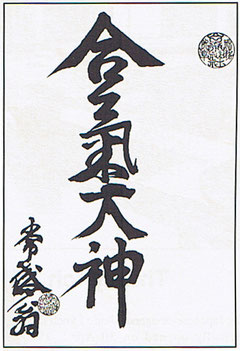 合氣大神
常盛翁